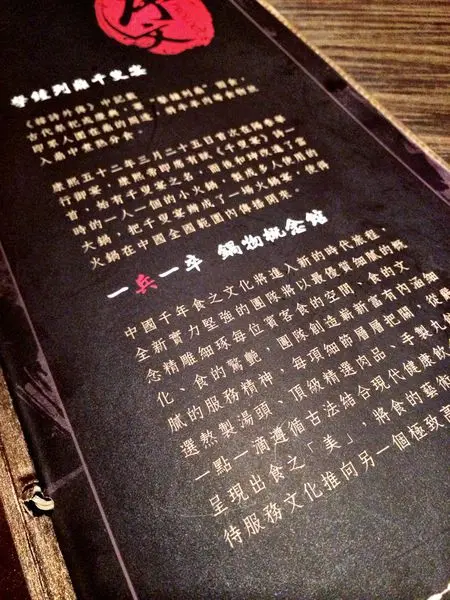 擊鐘列鼎千叟宴
《韓詩外傳》中記載
古代祭祀或慶典,要「擊鐘列鼎」而食,
即眾人圍在鼎的周邊,將牛羊肉等食物放
入鼎中煮熱分食。
康熙五十二年三月二十五日首次在暢春園
行御宴,康熙帝即席有賦《千叟宴》詩一
首,始有千叟宴之名,而後乾隆改進了當
時的一人一個的小火鍋,製成多人使用的
大鍋,把千叟宴辦成了一場火鍋宴,使得
火鍋在中國全國範圍內傳播開來。
一兵一卒 鍋物概念館
中國千年食之文化將進入新的時代旅程,
全新實力堅強的團隊將以最優質細膩的概
念精雕細琢每位賓客食的空間、食的文
化、食的驚艷,團隊創造嶄新富有內涵細
膩的服務精神,每項細節層層把關,從嚴
選熬製湯頭、頂級精選肉品、手製丸
一點一滴遵循古法結合現代健康飲
呈現出食之「美」,將食的藝術
待服務文化推向另一個極致